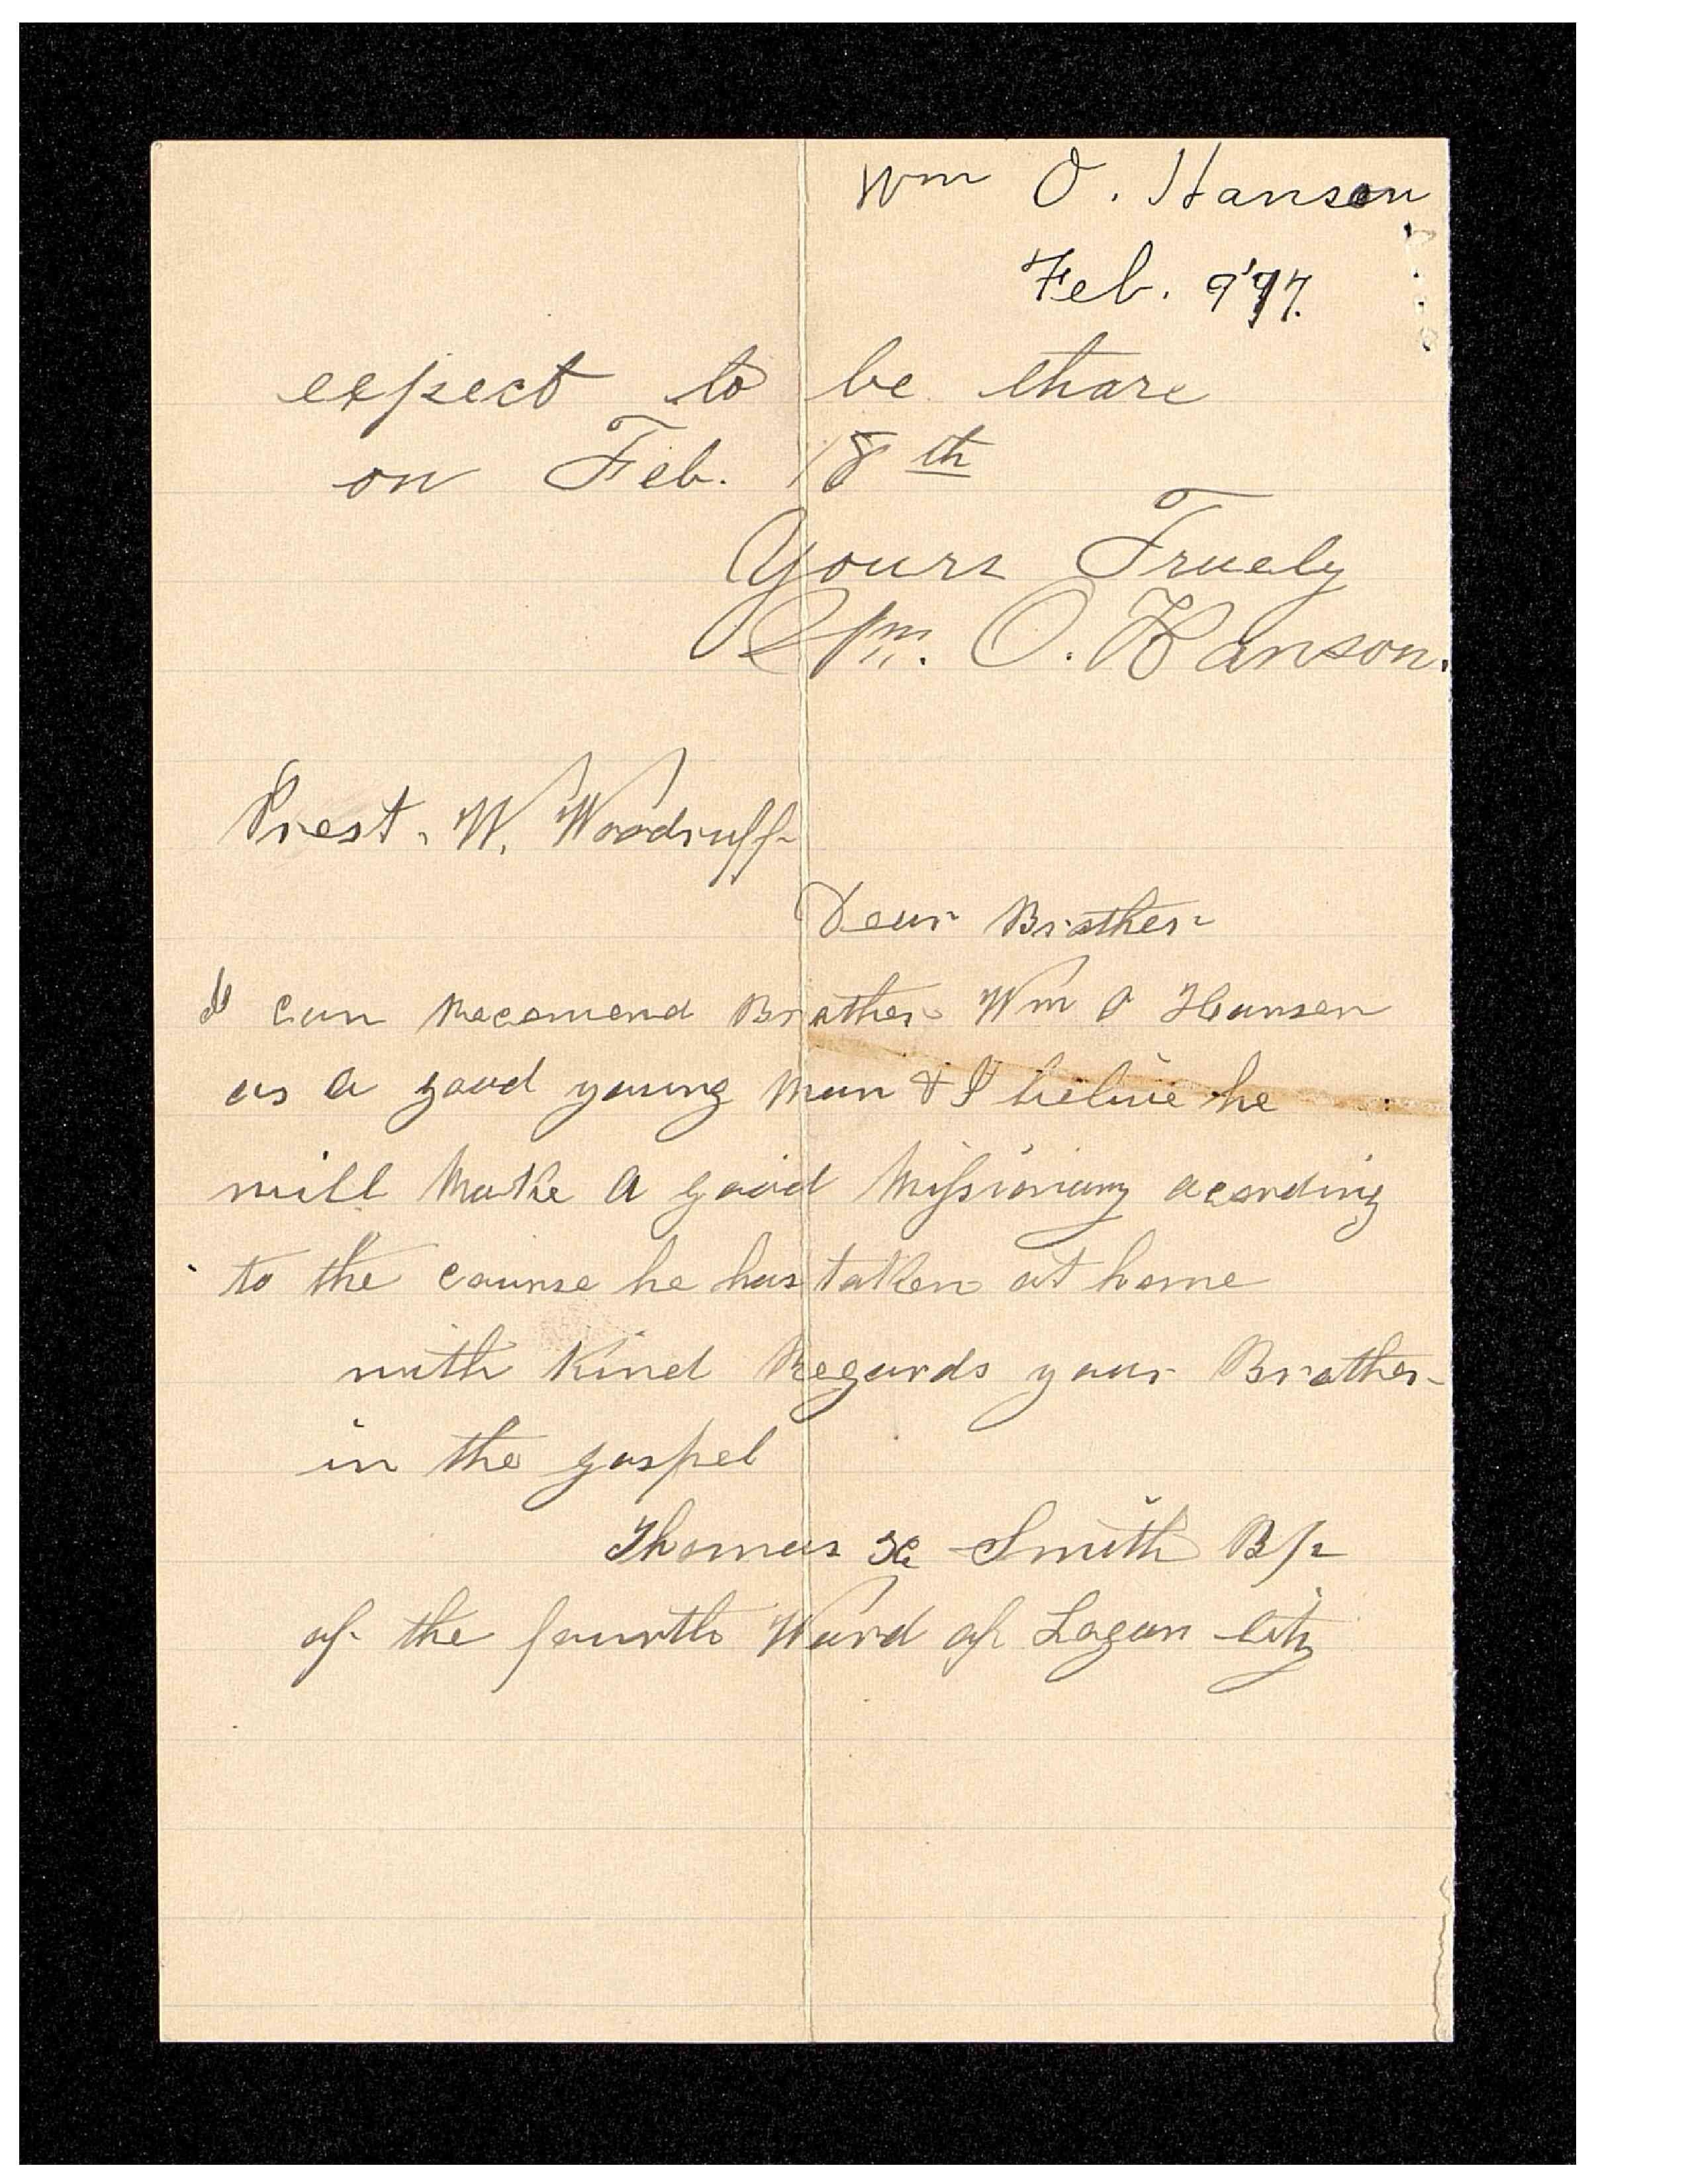 Wm O. Hanson
Feb. 9 '97.
expect to be thare
on Feb. 18th
Yours Truely
Wm. O. Hanson.
Prest. W. Woodruff
Dear Brother
I can Recomend Brother Wm O Hansen
as a good young Man & I belive he
will Make a good Missionary acording
to the course he has taken at home
with Kind Regards your Brother
in the gospel
Thomas X Smith Bp
of the fourth Ward of Logan City